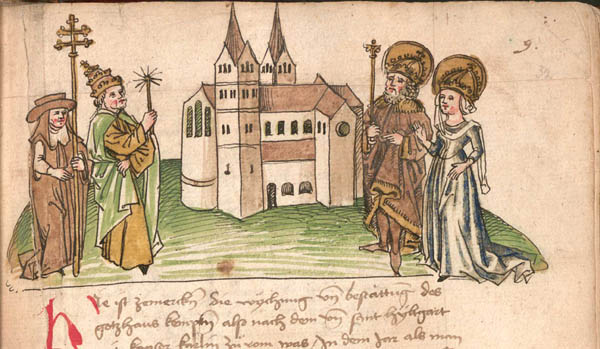 9.
Hie ist zemerckn̄ die wychung vn̄ bestättug des
gotzhaus kemptn̄ alß nach dem vn̄ sant hylgart
kayser karlin zů rom was / In dem Jar als man